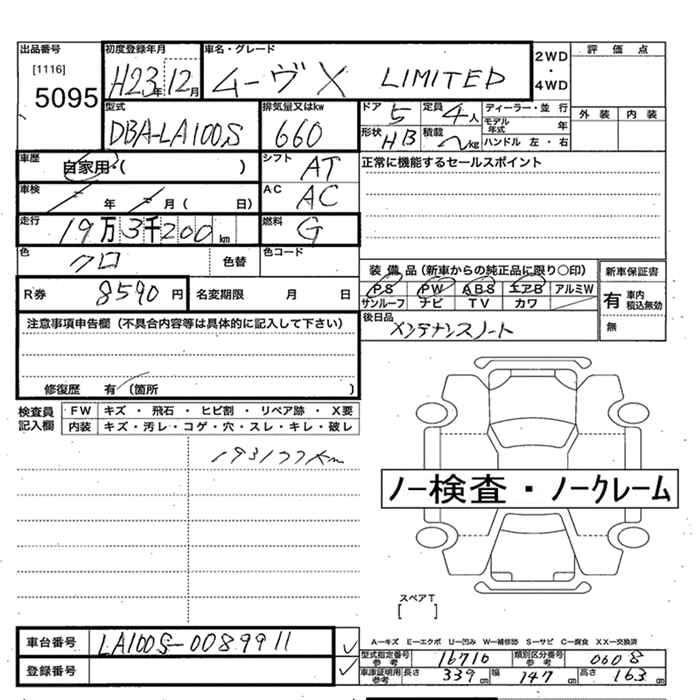 出品番号 初度登録年月 車名・グレード 2WD・4WD 評価点
[1116] 5095 H23年12月 ムーヴX LIMITED
型式 排気量又はkw ドア 5 定員 4人 ディーラー・並行 外装 内装
DBA-LA100S 660 モデル年式 年
形状 HB 積載 kg ハンドル 左・右
車歴 自家用・( ) シフト AT 正常に機能するセールスポイント
車検 年 月( 日) AC AC
走行 19万3千200km 燃料 G
色 クロ 色替 色コード
装備品(新車からの純正品に限り○印) 新車保証書
R券 8590円 名変期限 月 日 PS PW ABS エアB アルミW 有 車内 積込無効
サンルーフ ナビ TV カワ 無
注意事項申告欄(不具合内容等は具体的に記入して下さい) 後日品 メンテナンスノート
修復歴 有 (箇所 )
検査員記入欄 FW キズ・飛石・ヒビ割・リペア跡・X要
内装 キズ・汚レ・コゲ・穴・スレ・キレ・破レ
193177km
ノー検査・ノークレーム
スペアT
[ ]
車台番号 LA100S-0089911 A-キズ E-エクボ U-凹み W-補修跡 S-サビ C-腐食 XX-交換済
型式指定番号 参考 16710 類別区分番号 参考 0608
登録番号 車庫証明用 参考 長さ 339cm 幅 147cm 高さ 163cm